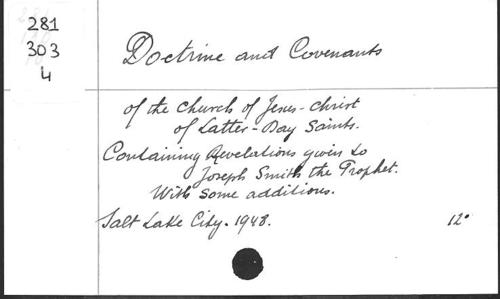 281
303
4
Doctrine and Covenants
of the Church of Jesus-Christ
of Latter-Day Saints.
Containing Revelations given to
Joseph Smith the Prophet.
With some additions.
Salt Lake City. 1948. 12°